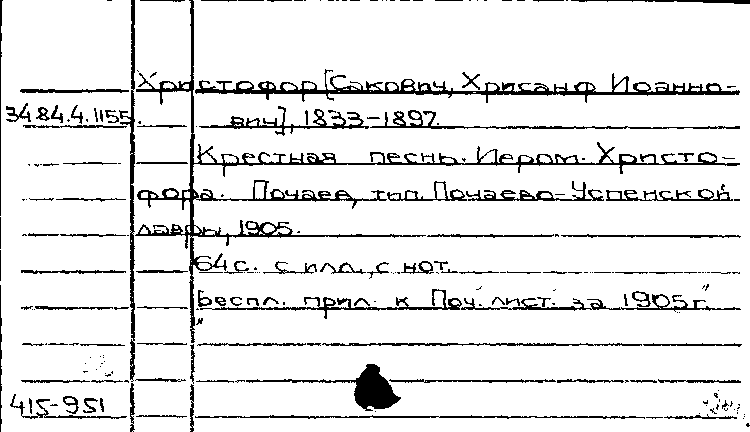 Христофор [Сакович, Хрисанф Иоанно-
34.84.4.1155. вич], 1833-1897.
Крестная песнь. Иером. Христо-
фора. Почаев, тип. Почаево-Успенской
лавры, 1905.
64 с. с илл., с нот.
Беспл. прил. к "Поч. лист." за 1905 г.
415-951